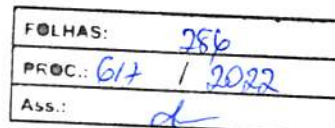 FOLHAS: 286
PROC.: 617 / 2022
Ass.: